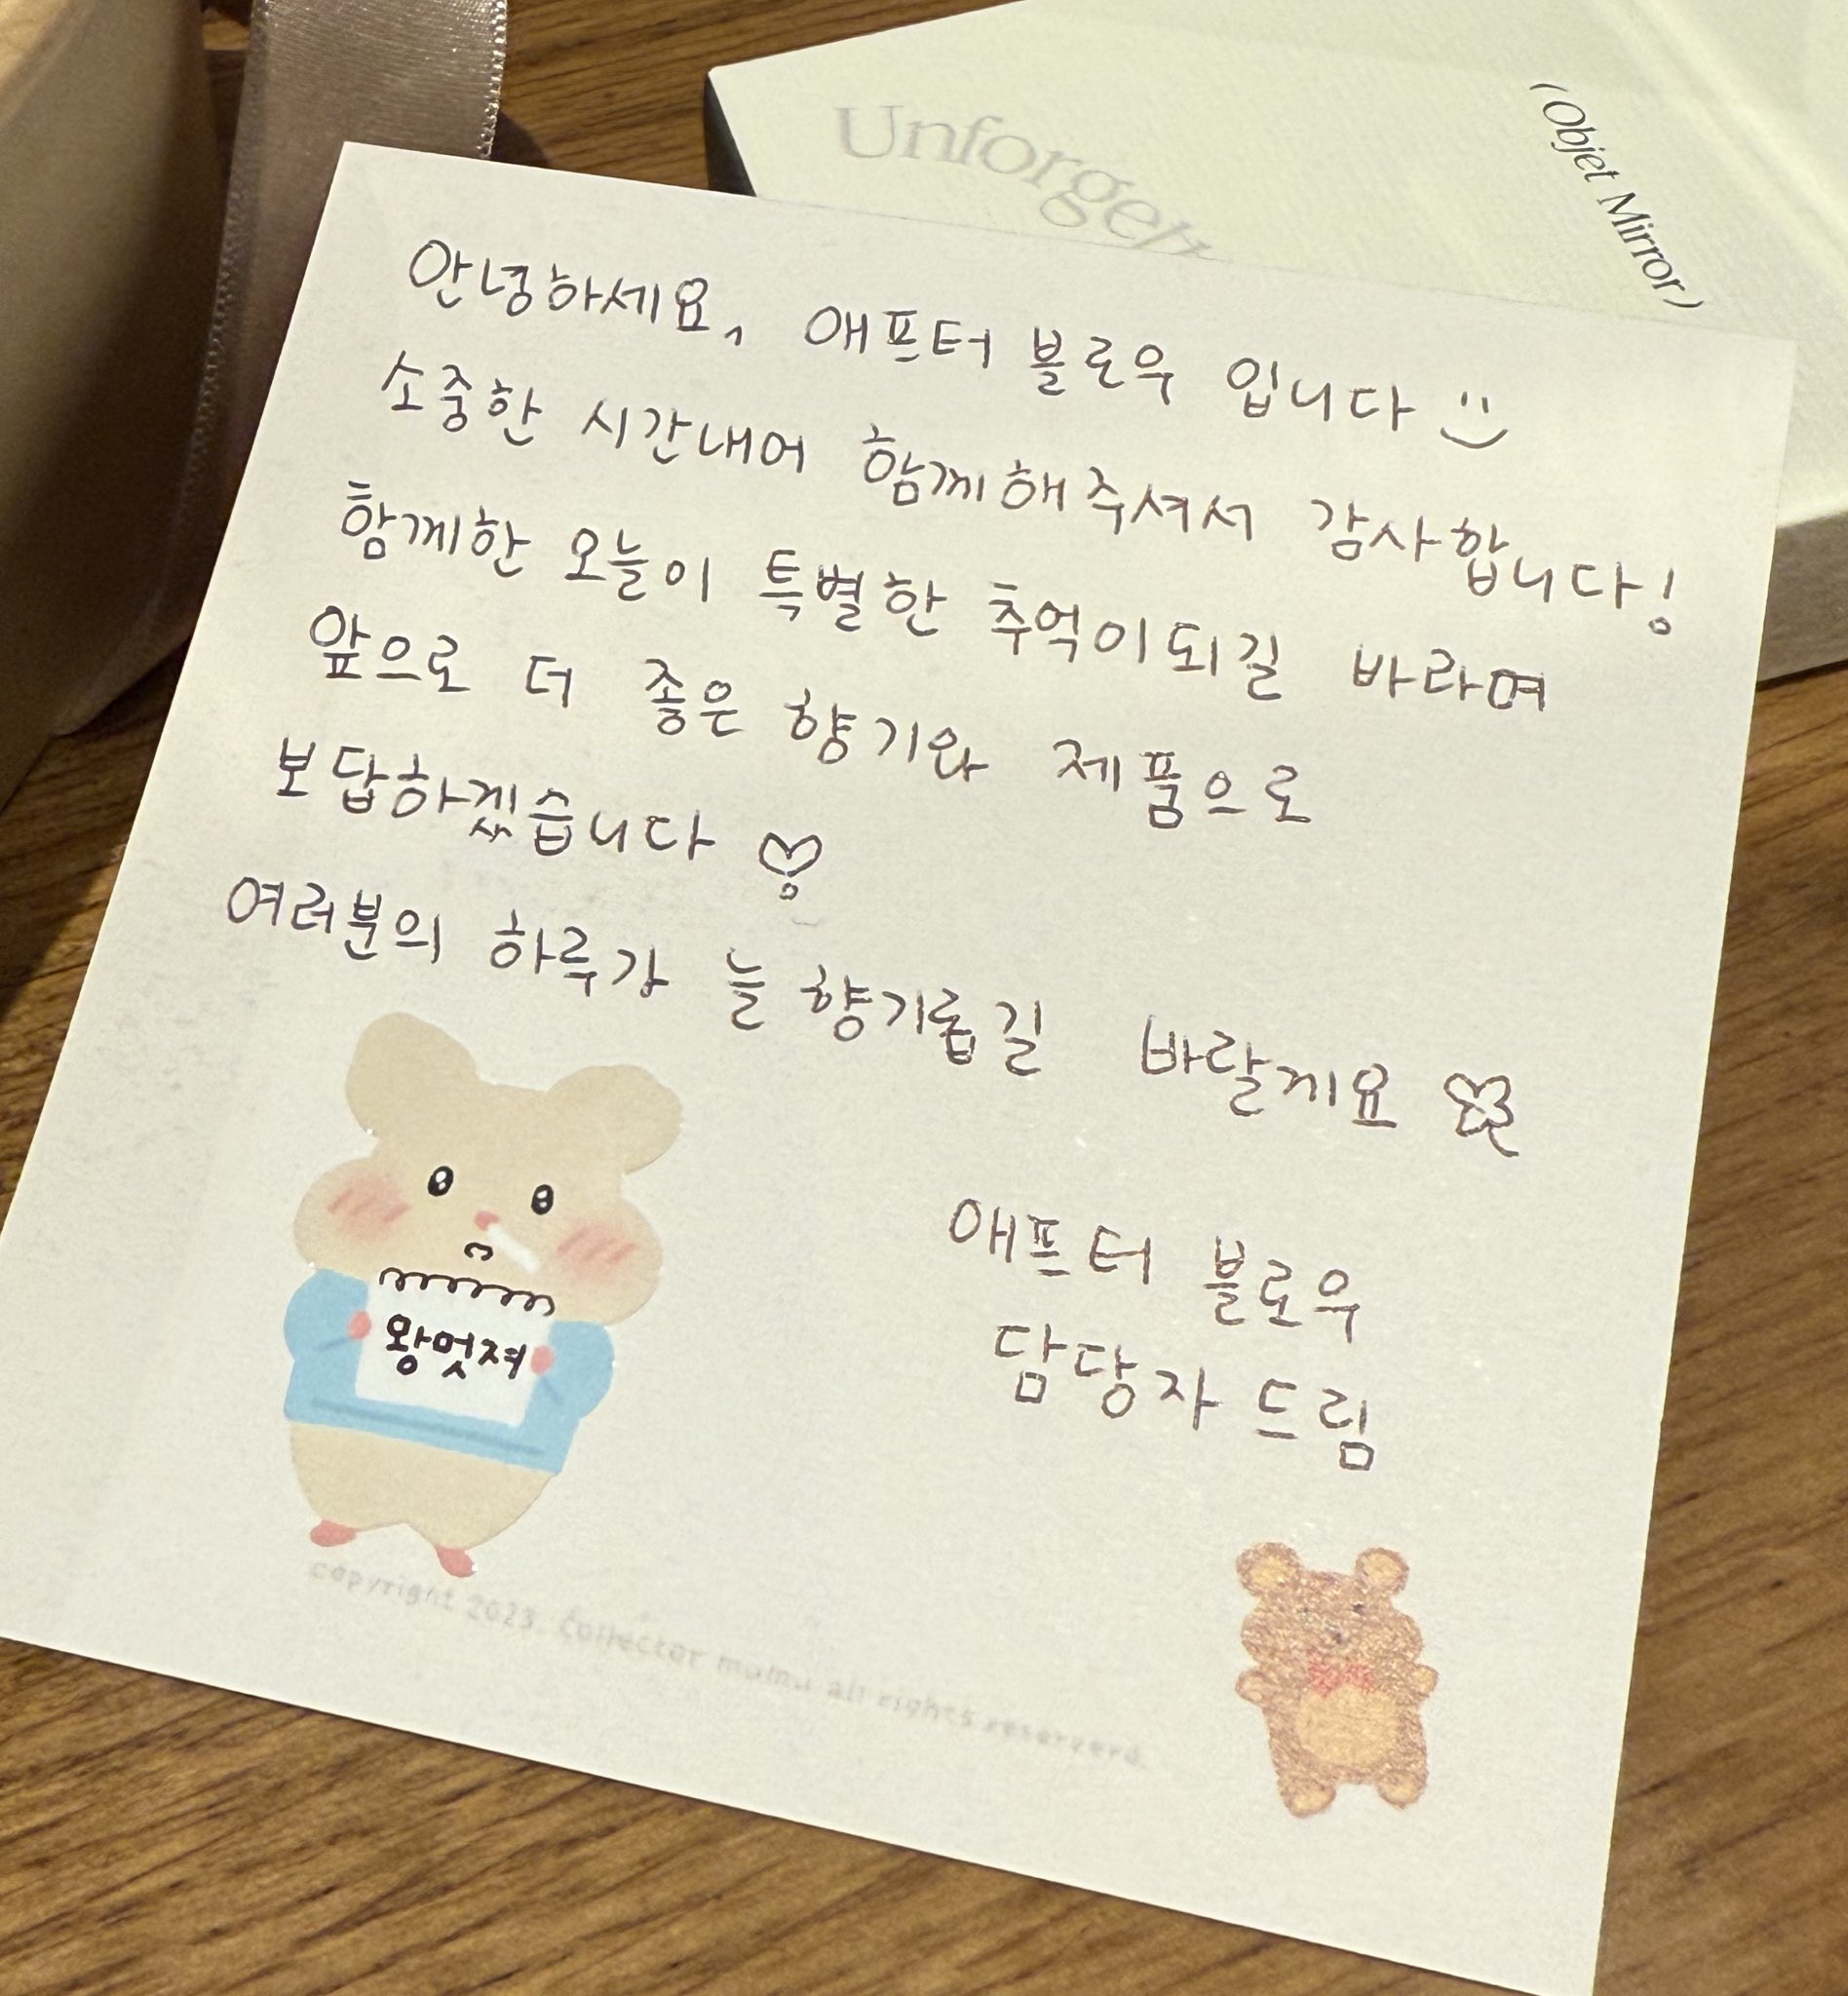 (Objet Mirror)
안녕하세요, 애프터 블로우 입니다
소중한 시간내어 함께해주셔서 감사합니다!
함께한 오늘이 특별한 추억이되길 바라며
앞으로 더 좋은 향기와 제품으로
보답하겠습니다
여러분의 하루가 늘 향기롭길 바랄게요
애프터 블로우
담당자 드림
왕멋져
copyright 2023. collector mamu all rights reserverd.